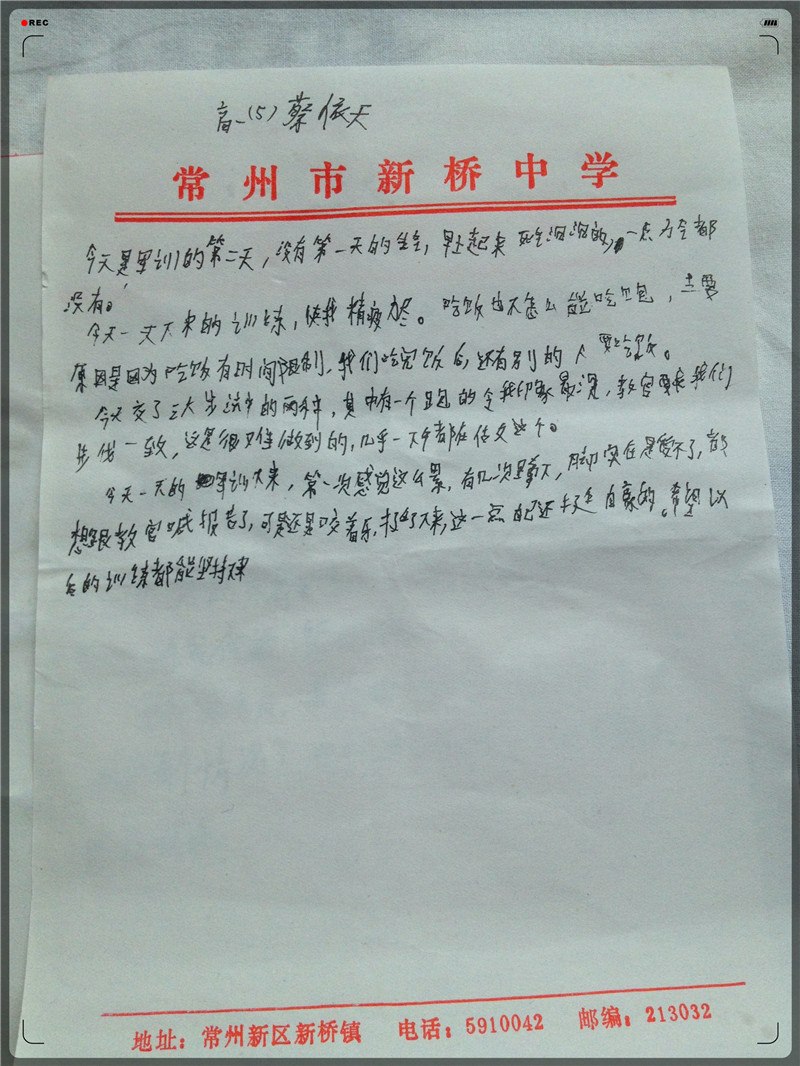 REC
高一(5) 蔡依天
常州市新桥中学
今天是军训的第二天，没有第一天的生气，早上起来 死气沉沉的，一点力气都
没有。
今天一天下来的训练，使我精疲力尽。吃饭也不怎么能吃饱，主要
原因是因为吃饭有时间限制，我们吃完饭后，还有别的人要吃饭。
今天交了三大步法中的两种，其中有一个跑的令我印象最深，教官要求我们
步伐一致，这是很难做到的，几乎一下午都在练这个。
今天一天的军训下来，第一次感觉这么累，有几次蹲下，脚实在是受不了，就
想跟教官喊报告了，可是还是咬着牙，打了下来，这一点自己还是挺自豪的。希望以
后的训练都能坚持下来
地址：常州新区新桥镇 电话：5910042 邮编：213032